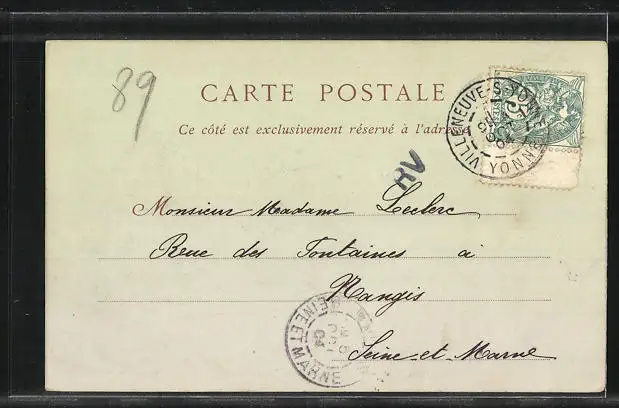 89
CARTE POSTALE
Ce côté est exclusivement réservé à l'adresse
VILLENEUVE-S-YONNE
YONNE
5
RV
Monsieur Madame Leclerc
Rue des Fontaines à
Nangis
Seine et Marne
SEINE ET MARNE
04